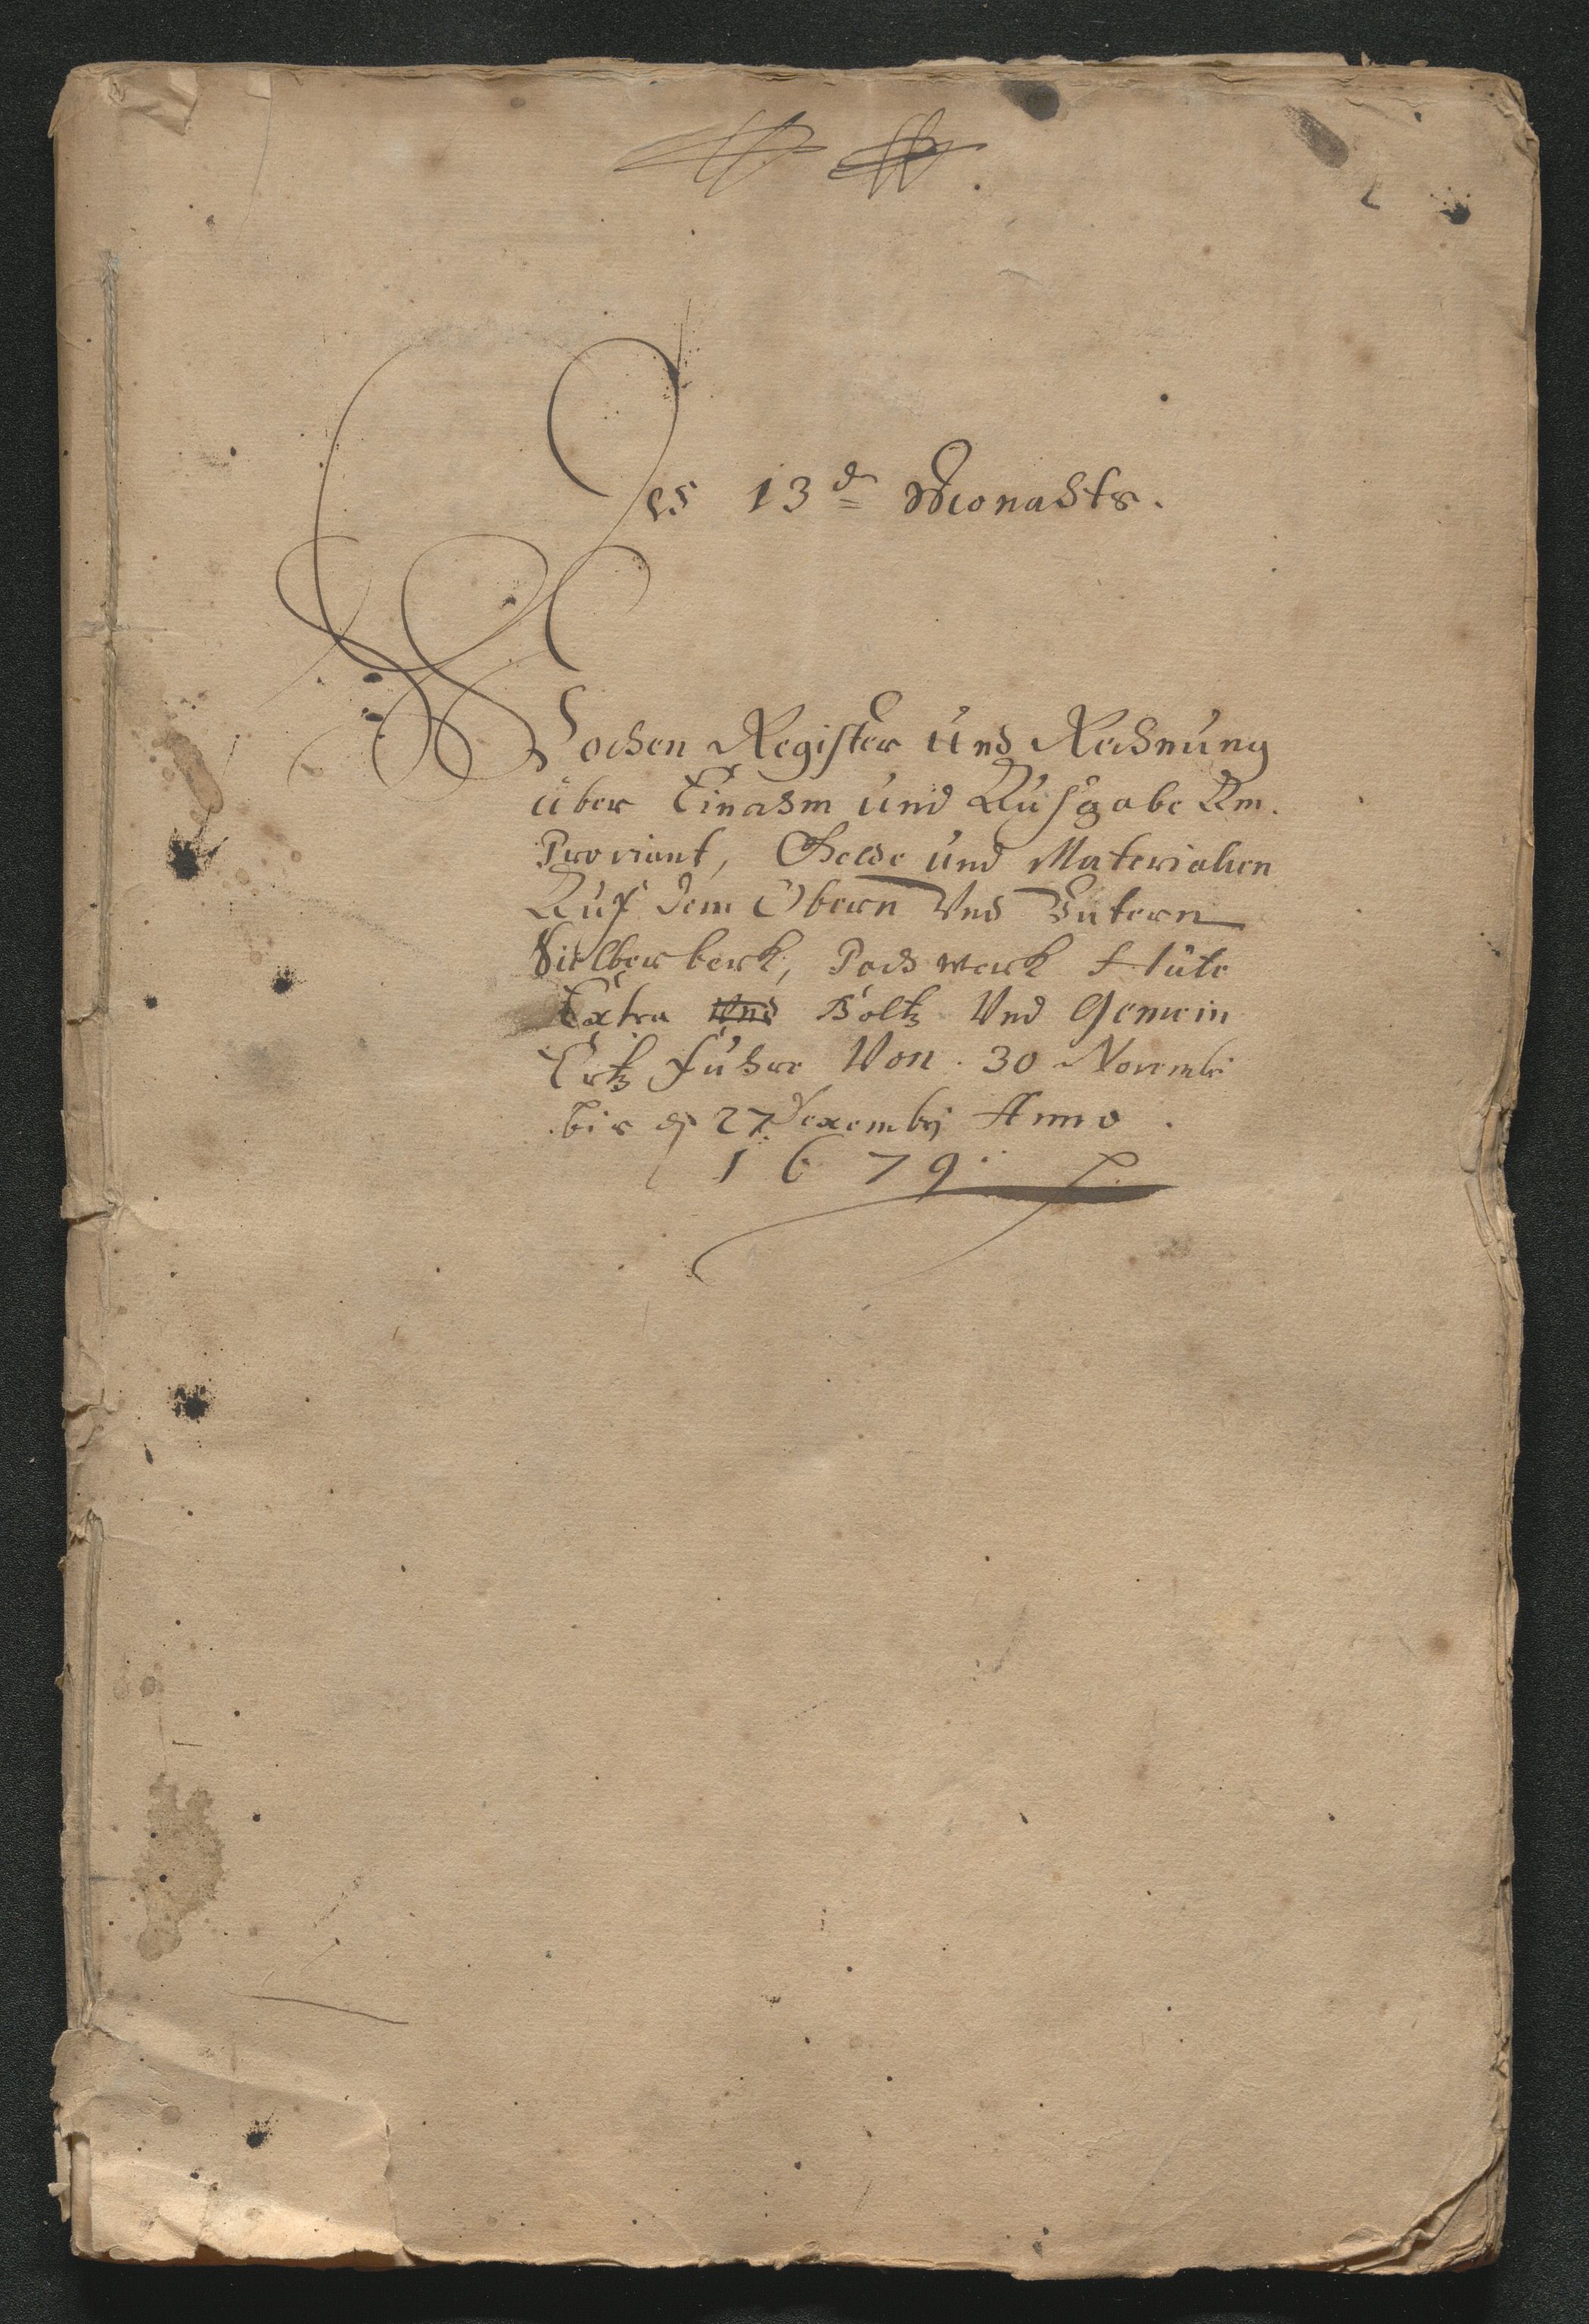 Des 13d Monahts.
Wochen Register und Rechnung
über Einahm und Ausgabe Am.
Proviant, Gelde und Materialien
Auf dem Obern Vnd Vntern
Sielberberk, Poch werk Hüte
Extra Holtz Vnd Gemein
Ertz fuhre Von 30 Novembr
bis dh 27 Dexembrj Anno
1679.